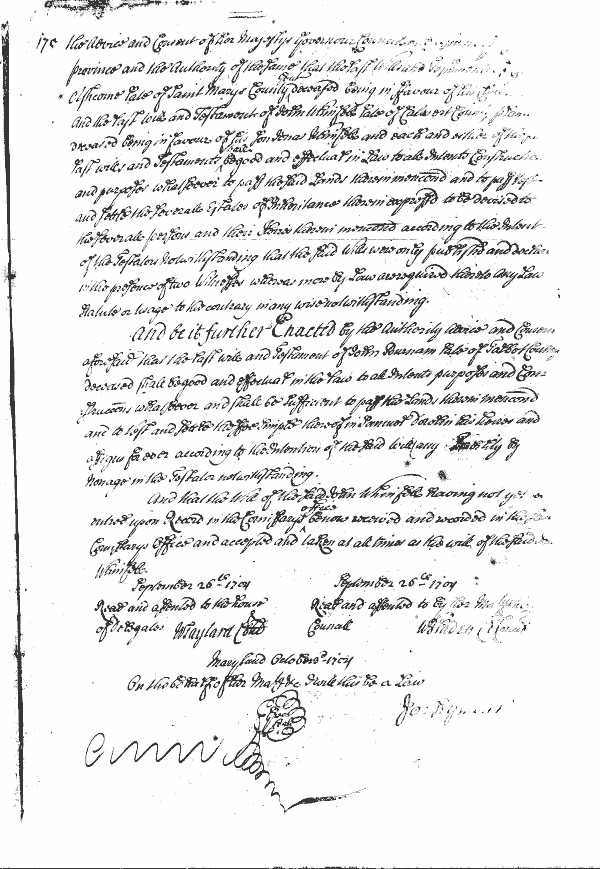 175 the Advice and Consent of her Majestys Governour Councill and
province and the Authority of the same that the last Will and Testament
late of Saint Marys County deceased being in favour of his
And the last Will and Testament of John Whinfell late of Calvert County
deceased being in favour of his Son Jonas Whinfell and each and either of the
last wills and Testaments shall be good and effectuall in Law to all Intents Construc
and purposes whatsoever to pass the said Lands therein menconed and to pass
and settle the severale Estates of Inheritance therein expressed to be devised to
the severale persons and their heires therein menconed according to the Intent
of the Testators Notwithstanding that the said Wills were only published and
in the presence of two Witnesses whereas more by Law are required thereto any Law
statute or usage to the contrary in any wise notwithstanding.
And be it further Enacted by the Authority advice and Consent
aforesaid that the last will and Testament of John late of Talbot County
deceased shall be good and effectuall in the Law to all Intents purposes and Con-
struccons whatsoever and shall be sufficient to pass the Lands therein menconed
and to vest and settle the ffee simple thereof in Samuel his heires and
assignes for ever according to the Intention of the said will any by
Nonage in the Testator notwithstanding.
And that the Will of the said John Whinfell having not yet
entred upon Record in the Comissarys office be now received and recorded in the
Comissarys Office and accepted and taken at all times as the will of the said
Whinfell.
September 26th 1704 September 26th 1704
Read and assented to by the house Read and assented to by her Majestys
of Delegates W Taylard Councill W Bladen Cl Council
Maryland October 3d 1704
On the behalfe of her Majtie I will this be a Law
Jo: Seymour